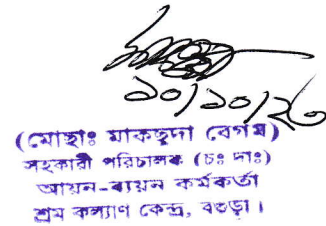 ১০/১০/২৩
(মোছাঃ মাকছুদা বেগম)
সহকারী পরিচালক (চঃ দাঃ)
আয়ন-ব্যয়ন কর্মকর্তা
শ্রম কল্যাণ কেন্দ্র, বগুড়া।